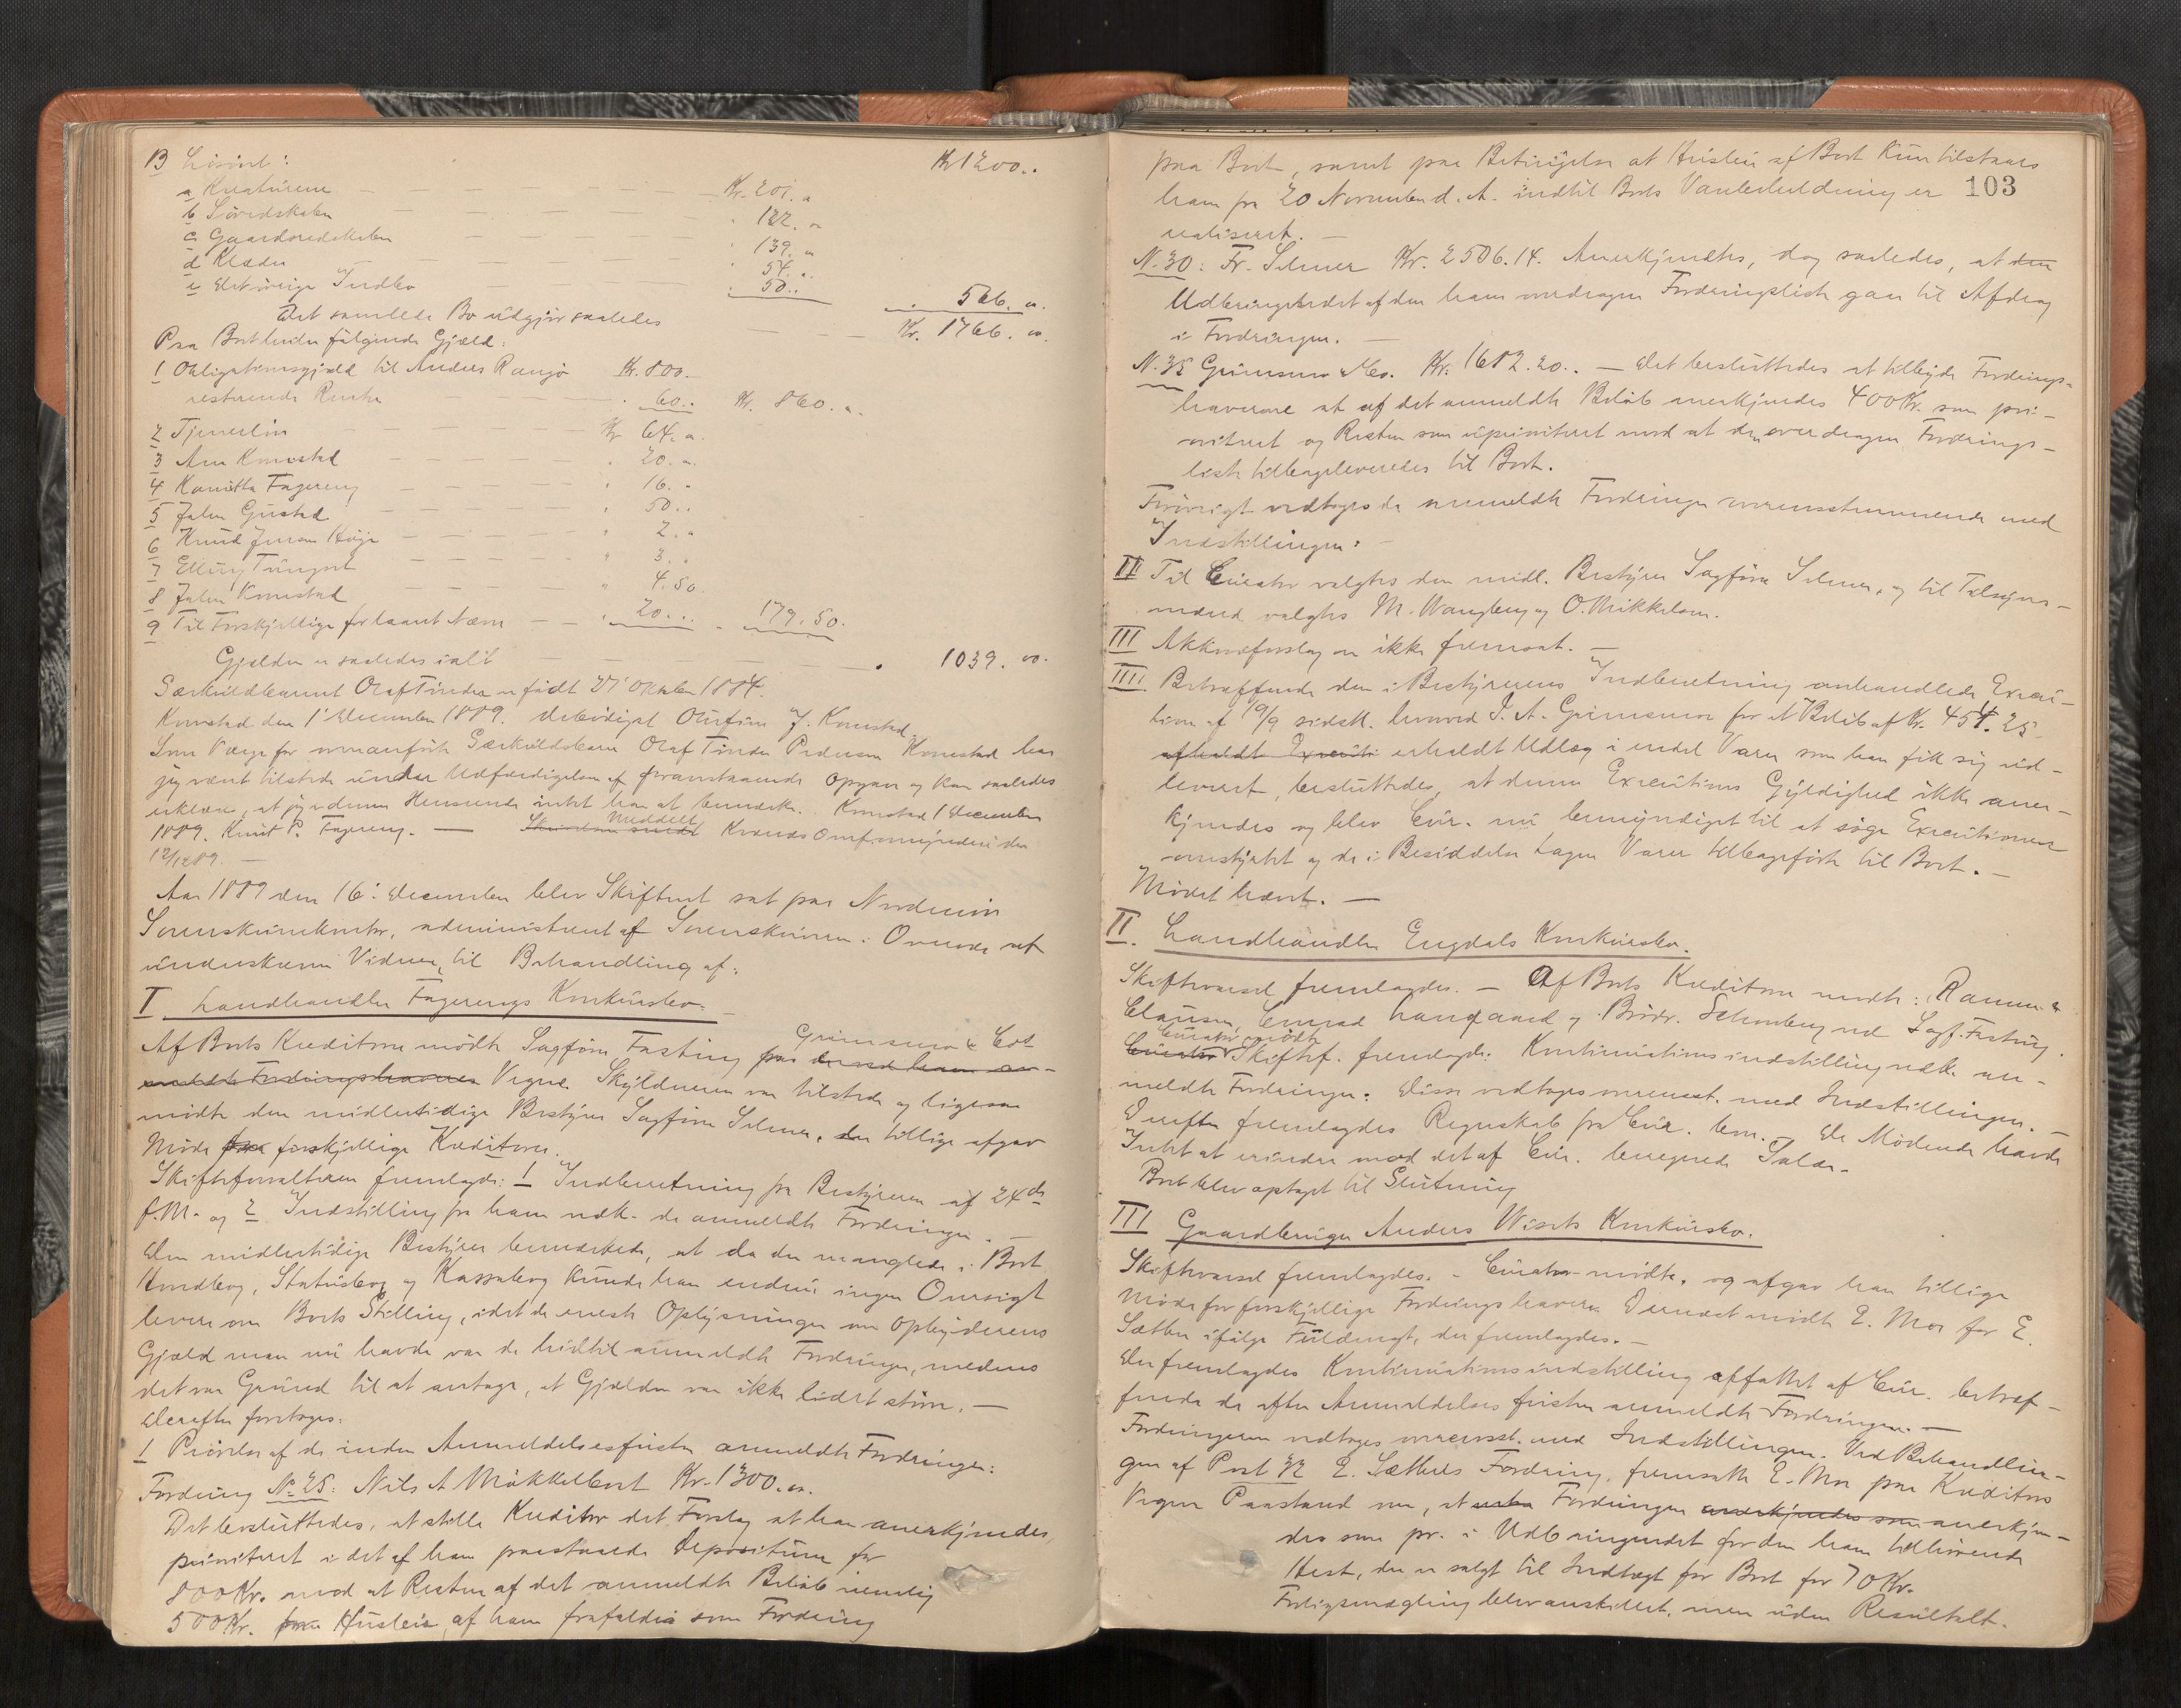 B Løsøret: Kr 1200..
a Kreaturene — Kr. 201. "
b Løvredskaben — " 122. "
c Gaardsredskaben — " 139. "
d Klæder — " 54. "
e det øvrige Indbo — " 50.. " 566. "
Det samlede Bo udgjør saaledes — Kr. 1766. "
Paa Boet hviler følgende Gjæld:
1 Obligationsgjæld til Anders Ranjø Kr. 800.
resterende Renter — " 60.. Kr. 860. "
2 Tjenerløn Kr 64. "
3 Ane Knustad " 20. "
4 Fagereng " 16. "
5 John Gustad " 50..
6 Knud Jensen " 2. "
7 Elling " 3. "
8 John " 4.50
9 Til Forskjellige for laant Næve — " 20... " 179.50.
Gjælden er saaledes ialt — " 1039. 00.
Særkuldbarnet Olaf Tinder er født 27' Oktober 1884.
den 1' December 1889.
Som Værge for ovenanførte Særkuldsbarn Olaf Tinder Pedersen har
jeg været tilstede under Udfærdigelsen af foranstaaende Opgave og kan saaledes
erklære, at jeg i denne Henseende intet har at bemærke. 1 December
1889. Knut P. Fagereng. — Meddelt den
12/12 89. —
Aar 1889 den 16: December blev Skifteret sat paa Nordmør
Sorenskriverkontor, administreret af Sorenskriveren: Overvær af
underskrevne Vidner, til Behandling af:
I Landhandler Fagerengs Konkursbo. —
Af Boets Kreditorer mødte Sagfører Fasting paa Grimsmo & Co's
Vegne. Skyldneren var tilstede og ligesaa
mødte den midlertidige Bestyrer Sagfører Selmer, der tillige afgav
Møde for forskjellige Kreditorer.
Skifteforvalteren fremlagde: 1 Indberetning fra Bestyreren af 24de
f. M. og 2 Indstilling fra ham vedk. de anmeldte Fordringer. —
Den midlertidige Bestyrer bemærkede, at da der manglede i Boet
Hovedbog, Statusbog og Kassabog kunde han endnu ingen Oversigt
levere over Boets Stilling, idet de eneste Oplysninger om Opbyderens
Gjæld man nu havde var de hidtil anmeldte Fordringer, medens
det var Grund til at antage, at Gjælden var ikke lidet større. —
Derefter foretoges:
1 Prøvelse af de inden Anmeldelsesfristen anmeldte Fordringer:
Fordring No 25: Nils A Møkkelbost Kr. 1300. "
Det besluttedes, at stille Kreditor det Forslag at han anerkjendes
prioriteret i det af ham paastaaede Depositum for
800 Kr. mod at Resten af det anmeldte Beløb nemlig
500 Kr. Husleie af ham frafaldes som Fordring
103
paa Boet, samt paa Betingelse at Husleie af Boet kun tilstaaes
ham fra 20 November d. A. indtil Boets Varebeholdning er
realiseret. —
No. 30: Fr. Selmer Kr. 2506.14. Anerkjendtes, dog saaledes, at
Udbringelsen af den ham overdragne Fordringsliste gaar til Afdrag
i Fordringen. —
No. 35 Grimsmo & Co. Kr. 1682.20.. — Det besluttedes at tilbyde Fordrings-
haverne at af det anmeldte Beløb anerkjendes 400 Kr. som pri-
oriteret og Resten som uprioriteret mod at den overdragne Fordrings-
liste tilbageleveredes til Boet.
Forøvrigt vedtoges de anmeldte Fordringer overensstemmende med
Indstillingen. —
II Til Curator valgtes den midl. Bestyrer Sagfører Selmer, og til Tilsyns-
mænd valgtes M. Wangberg og O. Mikkelsen.
III Akkordforslag var ikke fremsat. —
IIII. Betræffende den i Bestyrerens Indberetning omhandlede Execu-
tion af 19/9 sidstl. hvorved I. A. Grimsmo for et Beløb af Kr. 454.25.
afholdt Executi erholdt Udlæg i endel Varer som han fik sig ud-
leveret, besluttedes, at denne Executions Gyldighed ikke aner-
kjendes og blev Cur. nu bemyndiget til at søge Executionen
omstyrtet og de i Besiddelse tagne Varer tilbageført til Boet. —
Mødet hævet. —
II. Landhandler Engdals Konkursbo.
Skiftevarsel fremlagdes. — Af Boets Kreditorer mødte: Ramm &
Clausen, Conrad Langaard og Brødr. Schomberg ved Sagf. Fasting.
Curator mødte
Skiftef. fremlagde: Kontinuationsindstilling vedk. an-
meldte Fordringer. Disse vedtoges overensst. med Indstillingen. —
Derefter fremlagdes Regnskab fra Cur. bon. — De Mødende havde
Intet at erindre mod det af Cur. beregnede Salær.
Boet blev optaget til Slutning
III Gaardbruger Anders Wisets Konkursbo.
Skiftevarsel fremlagdes. — Curator mødte, og afgav han tillige
Møde for forskjellige Fordringshavere. Dernæst mødte E. Moe for E.
Sæther ifølge Fuldmagt, der fremlagdes. —
Der fremlagdes Kontinuationsindstilling affattet af Cur. betræf-
fende de efter Anmeldelses fristen anmeldte Fordringer. —
Fordringerne vedtoges overensst. med Indstillingen. Ved Behandlin-
gen af Post 32 E. Sæthers Fordring, fremsatte E. Moe paa Kreditors
Vegne Paastand om, at Fordringen anerkjendes som anerkjen-
des som pr. i Udbringendet for den ham tilhørende
Hest, der er solgt til Indtægt for Boet for 70 Kr.
Forligsmægling blev anstillet, men uden Resultat.